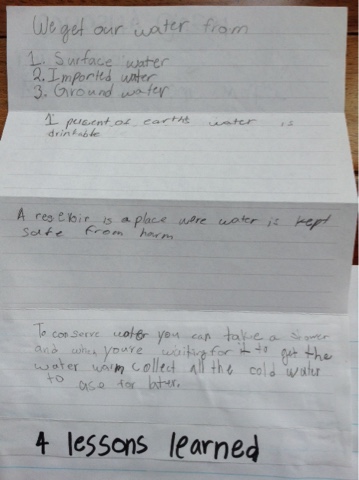 We get our water from
1. Surface water
2. Imported water
3. Ground water
1 percent of earths water is
drintable
A reservoir is a place were water is kept
safe from harm
To conserve water you can take a shower
and when youre waiting for it to get the
water warm collect all the cold water
to use for later.
4 lessons learned